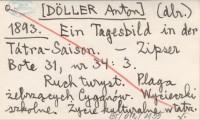 [DÖLLER Anton] (dbr.)
1893. Ein Tagesbild in der
Tátra-Saison. — Zipser
Bote 31, nr 34: 3.
Ruch turyst. Plaga
żebrzących Cyganów. Wycieczki
szkolne. Życie kulturalne w Tatra